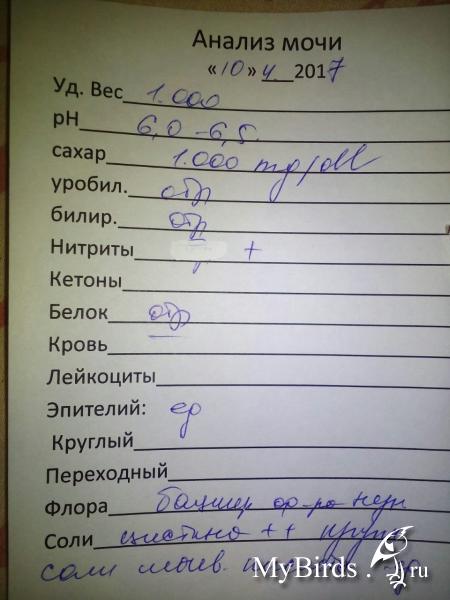 Анализ мочи
«10» 4 2017
Уд. Вес 1.000
pH 6,0-6,5
сахар 1.000 mg/dl
уробил. отр
билир. отр
Нитриты +
Кетоны
Белок отр
Кровь
Лейкоциты
Эпителий: ед
Круглый
Переходный
Флора
Соли цистина ++
соли мочев.
MyBirds.ru